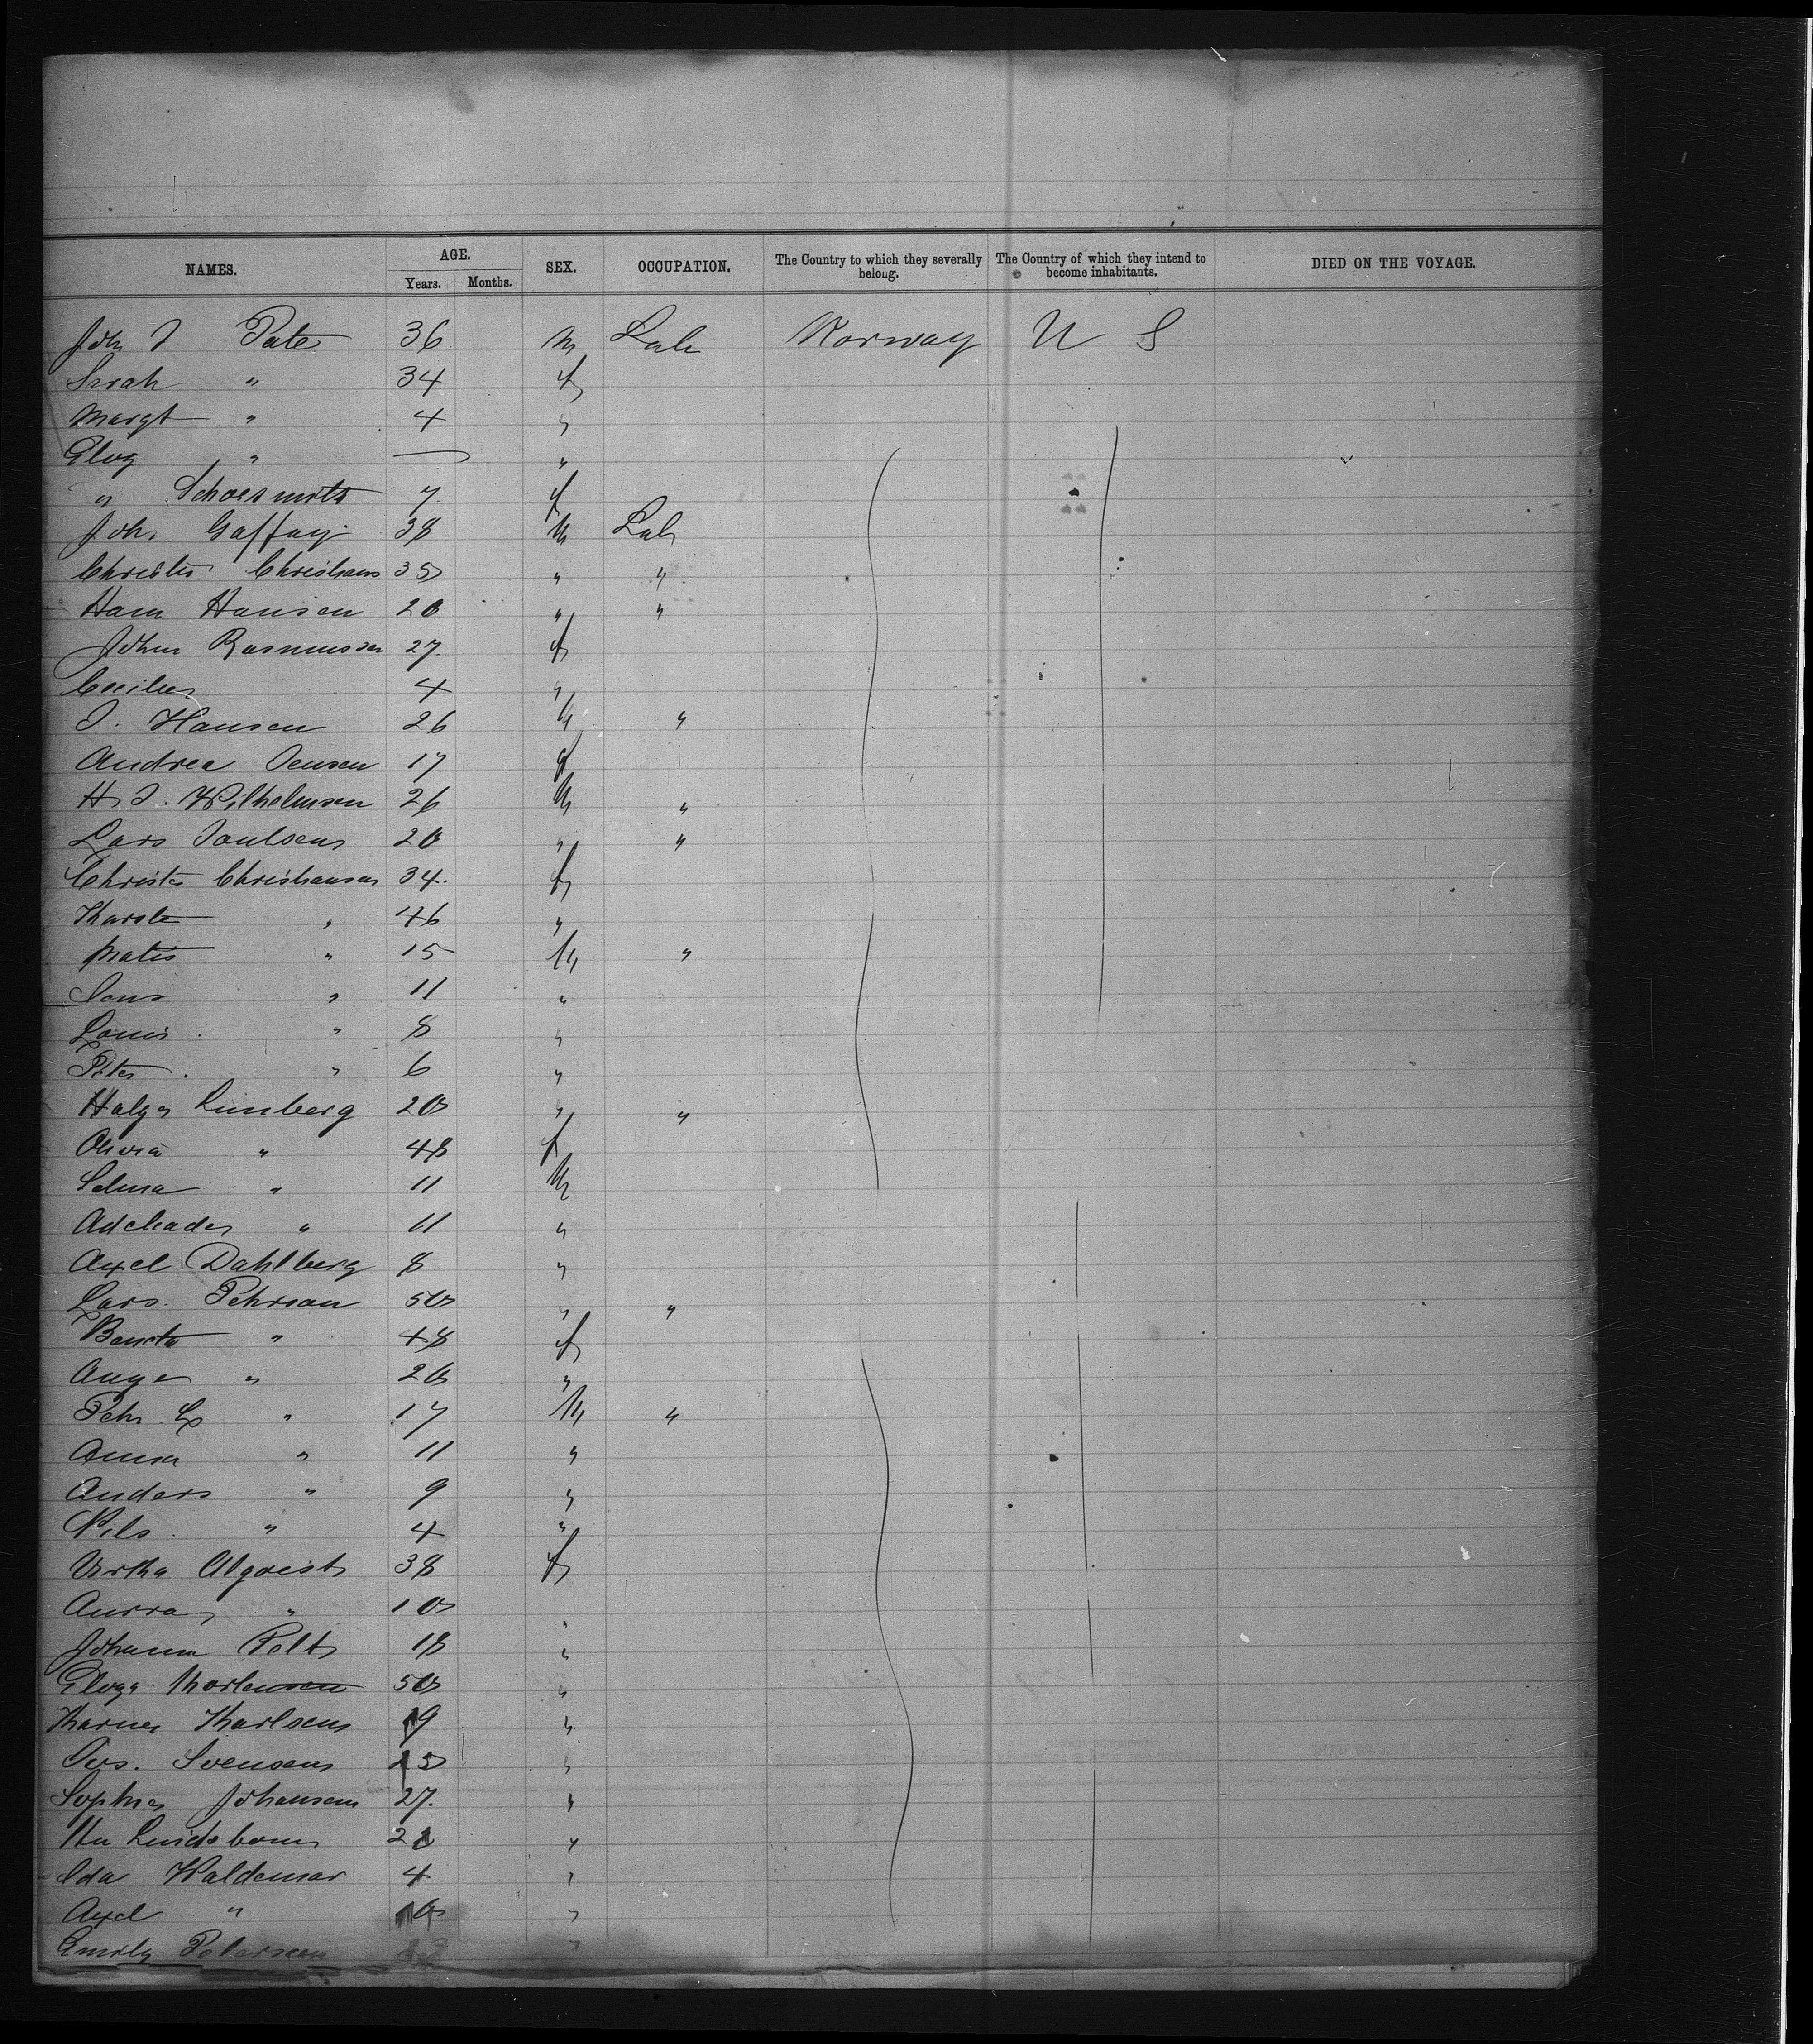 NAMES. AGE. SEX. OCCUPATION. The Country to which they severally belong. The Country of which they intend to become inhabitants. DIED ON THE VOYAGE.
Years. Months.
Joh J Pate 36 M Lab Norway U S
Sarah " 34 f
Margt " 4 "
Elvy " — "
" 7 f
Joh. Gaffay 38 M Lab
Christen Christians 35 " "
Hans Hansen 20 " "
Johan Rasmussen 27 f
Cecilia 4 "
J. Hansen 26 M "
Andrea Jensen 17 f
H. J. Wilhelmsen 26 M "
Lars Poulsen 20 " "
Christen Christiansen 34 f
Karste " 46 "
Matis " 15 M "
Jens " 11 "
Louis " 8 "
Peter " 6 "
Holger Lunberg 20 " "
Olivia " 48 f
Selma " 11 M
Adelade " 11 "
Axel Dahlberg 8 "
Lars Pehrson 50 " "
Bencta " 48 f
Auge " 20 "
Pehr L " 17 M "
Anna " 11 "
Anders " 9 "
Nils " 4 "
Alqvist 38 f
" 10 "
Johanna Polt 18 "
Mortensen 50 "
Karna Karlsen 19 "
Svensen "
Sophia Johansen 27 "
"
Ida Waldemar 4 "
Axel " "
Emily Petersen "